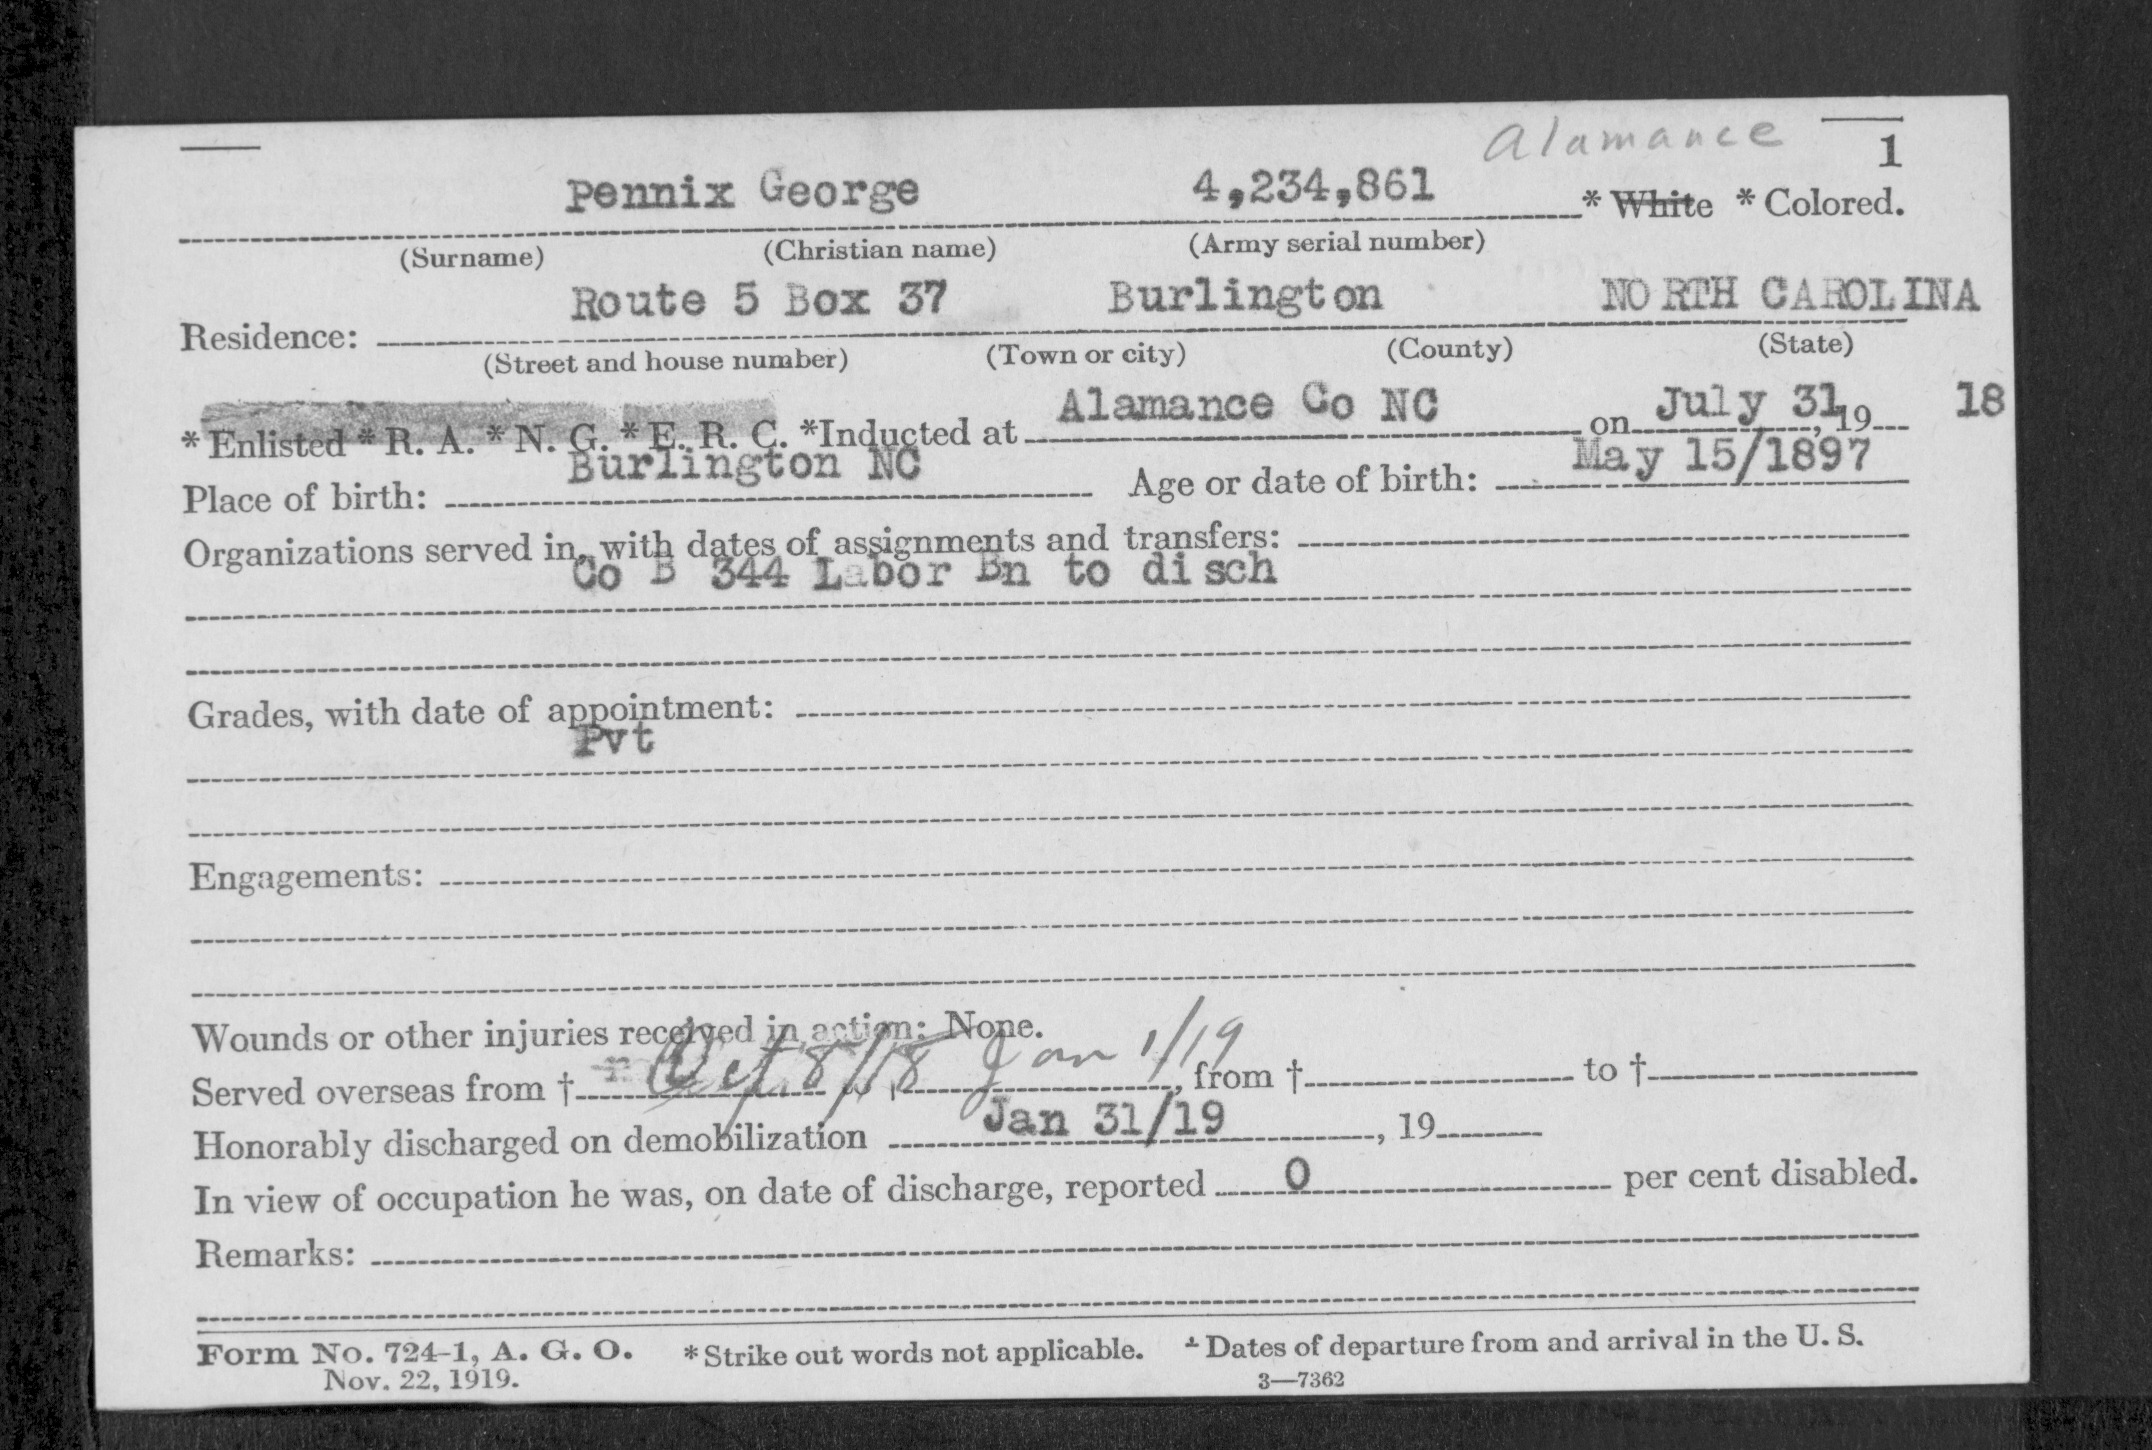 Alamance
1
Pennix George 4,234,861 * White * Colored.
(Surname) (Christian name) (Army serial number)
Route 5 Box 37 Burlington NORTH CAROLINA
Residence:
(Street and house number) (Town or city) (County) (State)
*Enlisted *R. A. *N. G. *E. R. C. *Inducted at Alamance Co NC on July 31, 19 18
Place of birth: Burlington NC Age or date of birth: May 15/1897
Organizations served in, with dates of assignments and transfers:
Co B 344 Labor Bn to disch
Grades, with date of appointment:
Pvt
Engagements:
Wounds or other injuries received in action: None.
Served overseas from † Oct 8/18 Jan 1/19, from † to †
Honorably discharged on demobilization Jan 31/19, 19
In view of occupation he was, on date of discharge, reported 0 per cent disabled.
Remarks:
Form No. 724-1, A. G. O. *Strike out words not applicable. † Dates of departure from and arrival in the U. S.
Nov. 22, 1919. 3—7362